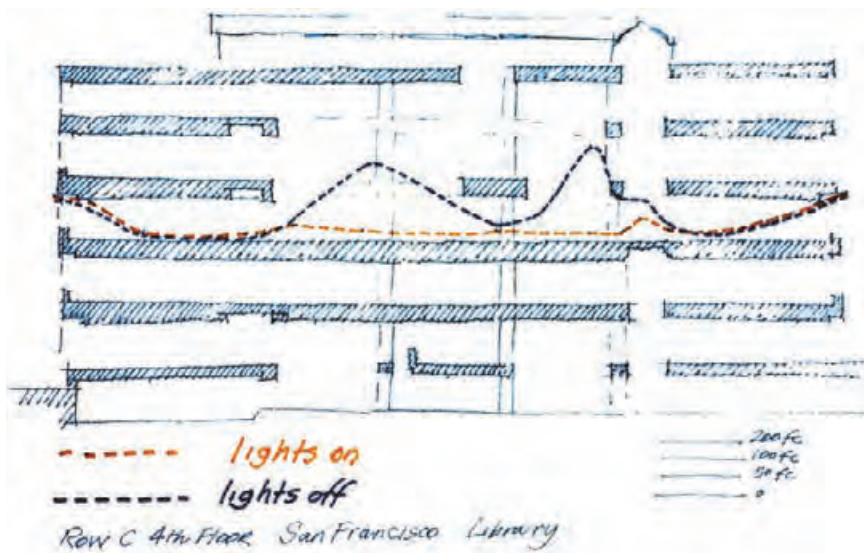 lights on
lights off
200fc
100fc
50fc
0
Row C 4th Floor San Francisco Library